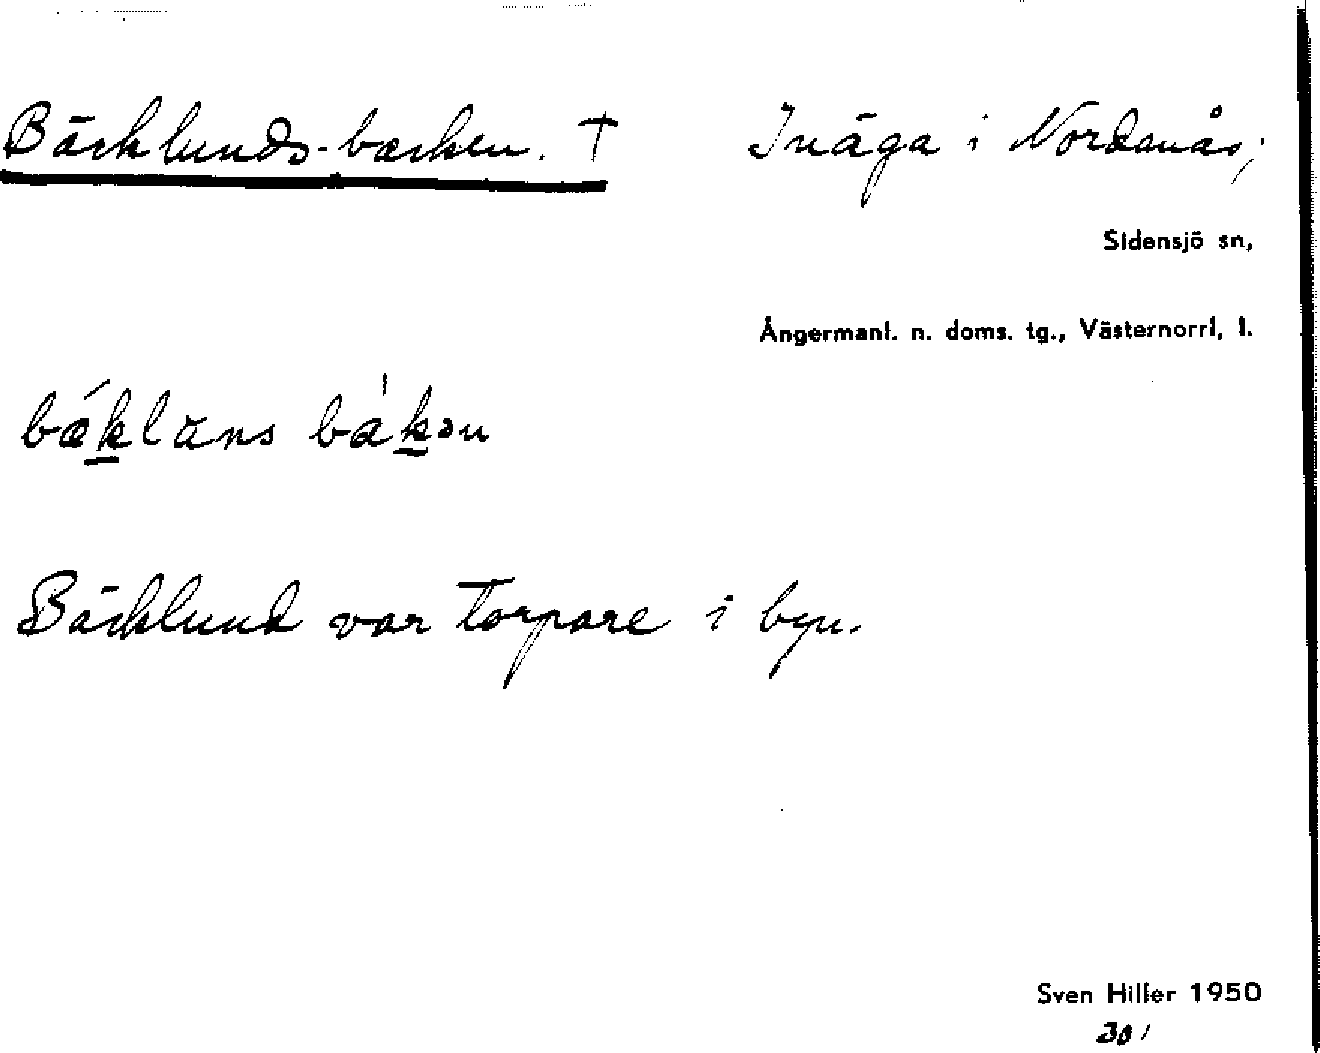 Bäcklunds-backen. † Inäga i Nordanås;
Sidensjö sn,
Ångermanl. n. doms. tg., Västernorrl. l.
Bäcklund var torpare i byn.
Sven Hiller 1950
301